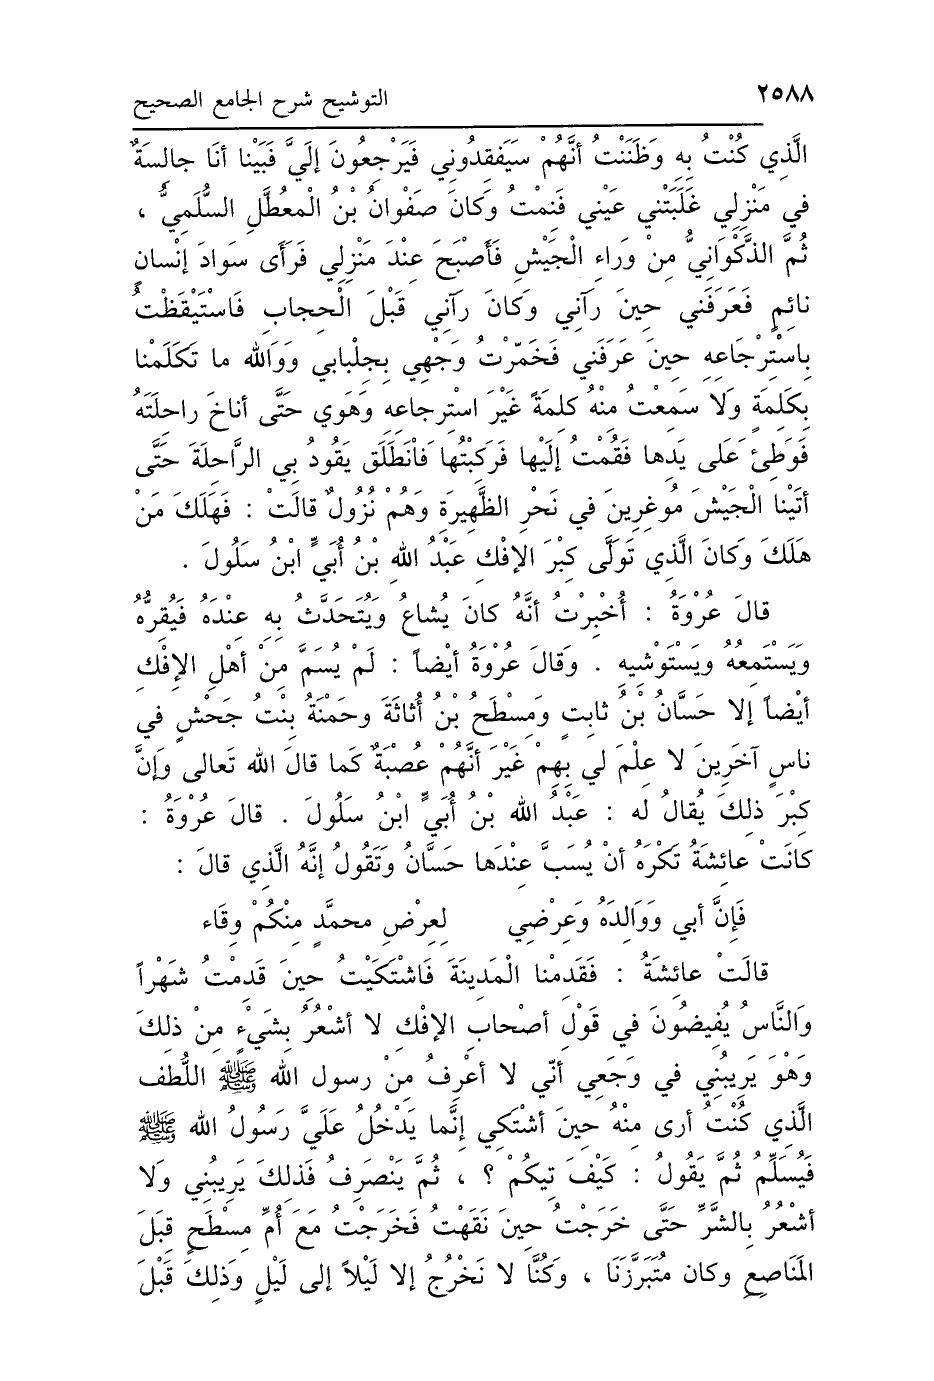 ٢٥٨٨ التوشيح شرح الجامع الصحيح
الَّذِي كُنْتُ بِهِ وَظَنَنْتُ أنَّهُمْ سَيَفقِدُوني فَيَرْجِعُونَ إلَيَّ فَبَيْنا أنَا جالسَةٌ
في مَنْزِلِي غَلَبَتْني عَيْني فَنِمْتُ وَكَانَ صَفْوانُ بْنُ الْمعُطَّلِ السُّلَمِيُّ ،
ثُمَّ الذَّكْوَانِيُّ مِنْ وَرَاءِ الْجَيْشِ فَأَصْبَحَ عِنْدَ مَنْزِلِي فَرَأَى سَوادَ إنْسانٍ
نائِمٍ فَعَرَفَني حِينَ رآني وَكَانَ رَآني قَبْلَ الْحِجابِ فَاسْتَيْقَظْتُ
بِاسْتِرْجَاعِهِ حِينَ عَرَفَني فَخَمّرْتُ وَجْهِي بِجلْبابي وَوَالله ما تَكَلَمْنا
بِكَلِمَةٍ وَلَا سَمِعْتُ مِنْهُ كلِمَةً غَيْرَ اسْتِرجاعِهِ وَهَوي حَتَّى أناخَ راحلَتَهُ
فَوَطِئَ عَلى يَدِها فَقُمْتُ إلَيْها فَرَكِبْتُها فَانْطَلَقَ يَقُودُ بي الرَّاحلَةَ حَتَّى
أتَيْنا الْجَيْشَ مُوغِرِينَ في نَحْرِ الظَّهِيرَةِ وَهُمْ نُزُولٌ قالَتْ : فَهَلَكَ مَنْ
هَلَكَ وَكانَ الَّذي تَوَلَّى كِبْرَ الإفْكِ عَبْدُ اللهِ بْنُ أُبَيٍّ ابْنُ سَلُولَ .
قالَ عُرْوَةُ : أُخْبِرْتُ أنَّهُ كانَ يُشاعُ وَيُتَحَدَّثُ بِهِ عِنْدَهُ فَيُقرُّهُ
وَيَسْتَمِعُهُ ويَسْتَوْشيهِ . وَقالَ عُرْوَةُ أيْضاً : لَمْ يُسَمَّ مِنْ أهْلِ الإفْكِ
أيْضاً إلا حَسَّانُ بْنُ ثابتٍ ومَسْطَحُ بْنُ أُثاثَةَ وحَمْنَةُ بِنْتُ جَحْشٍ في
ناسٍ آخَرِينَ لا عِلْمَ لي بِهِمْ غَيْرَ أنَّهُمْ عُصْبَةٌ كَما قالَ الله تَعالى وَإنَّ
كِبْرَ ذلِكَ يُقالُ له : عَبْدُ الله بْنُ أُبَيٍّ ابْنُ سَلُولَ . قالَ عُرْوَةُ :
كانَتْ عائشَةُ تَكْرَهُ أنْ يُسَبَّ عِنْدَها حَسَّانُ وَتَقُولُ إنَّهُ الَّذي قالَ :
فَإنَّ أبي وَوَالدَهُ وَعِرْضِي لِعِرْضِ محمَّدٍ مِنْكُمْ وِقَاء
قالَتْ عائِشَةُ : فَقَدمْنا الْمَدينَةَ فَاشْتَكَيْتُ حِينَ قَدِمْتُ شَهْراً
وَالنَّاسُ يُفِيضُونَ في قَوْلِ أصْحابِ الإفْكِ لا أشْعُرُ بِشَيْءٍ مِنْ ذلِكَ
وَهْوَ يَرِيبُنِي في وَجَعِي أنّي لا أعْرِفُ مِنْ رسول الله ﷺ اللُّطفَ
الَّذِي كُنْتُ أرى مِنْهُ حِينَ أشْتَكي إنَّما يَدْخُلُ عَلَيَّ رَسُولُ الله ﷺ
فَيُسَلِّمُ ثُمَّ يَقُولُ : كَيْفَ تِيكُمْ ؟ ، ثُمَّ يَنْصَرِفُ فَذلِكَ يَرِيبُنِي وَلا
أشْعُرُ بِالشَّرِّ حَتَّى خَرَجْتُ حِينَ نَقَهْتُ فَخَرَجْتُ مَعَ أُمِّ مِسْطَحٍ قِبَلَ
المَنَاصِعِ وكان مُتَبَرَّزَنَا ، وَكُنَّا لا نَخْرُجُ إلا لَيْلاً إلى لَيْلٍ وَذلِكَ قَبْلَ